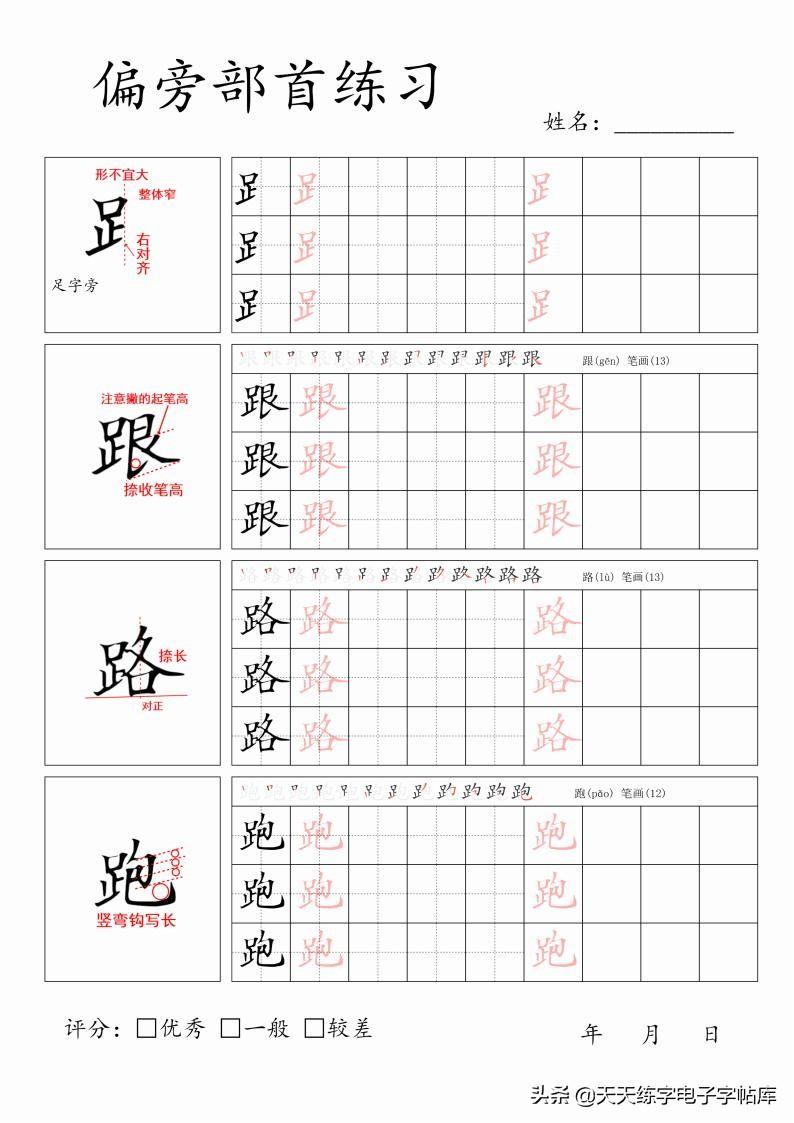 偏旁部首练习
姓名：__________
形不宜大
整体窄
𧾷
右对齐
足字旁
𧾷 𧾷 𧾷
𧾷 𧾷 𧾷
𧾷 𧾷 𧾷
跟(gēn) 笔画(13)
注意撇的起笔高
跟
捺收笔高
跟 跟 跟
跟 跟 跟
跟 跟 跟
路(lù) 笔画(13)
路
捺长
对正
路 路 路
路 路 路
路 路 路
跑(pǎo) 笔画(12)
跑
竖弯钩写长
跑 跑 跑
跑 跑 跑
跑 跑 跑
评分：□优秀 □一般 □较差
年 月 日
头条 @天天练字电子字帖库